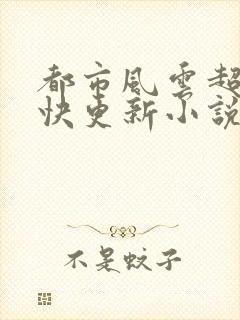 都市風雲超
快更新小說
不是蚊子